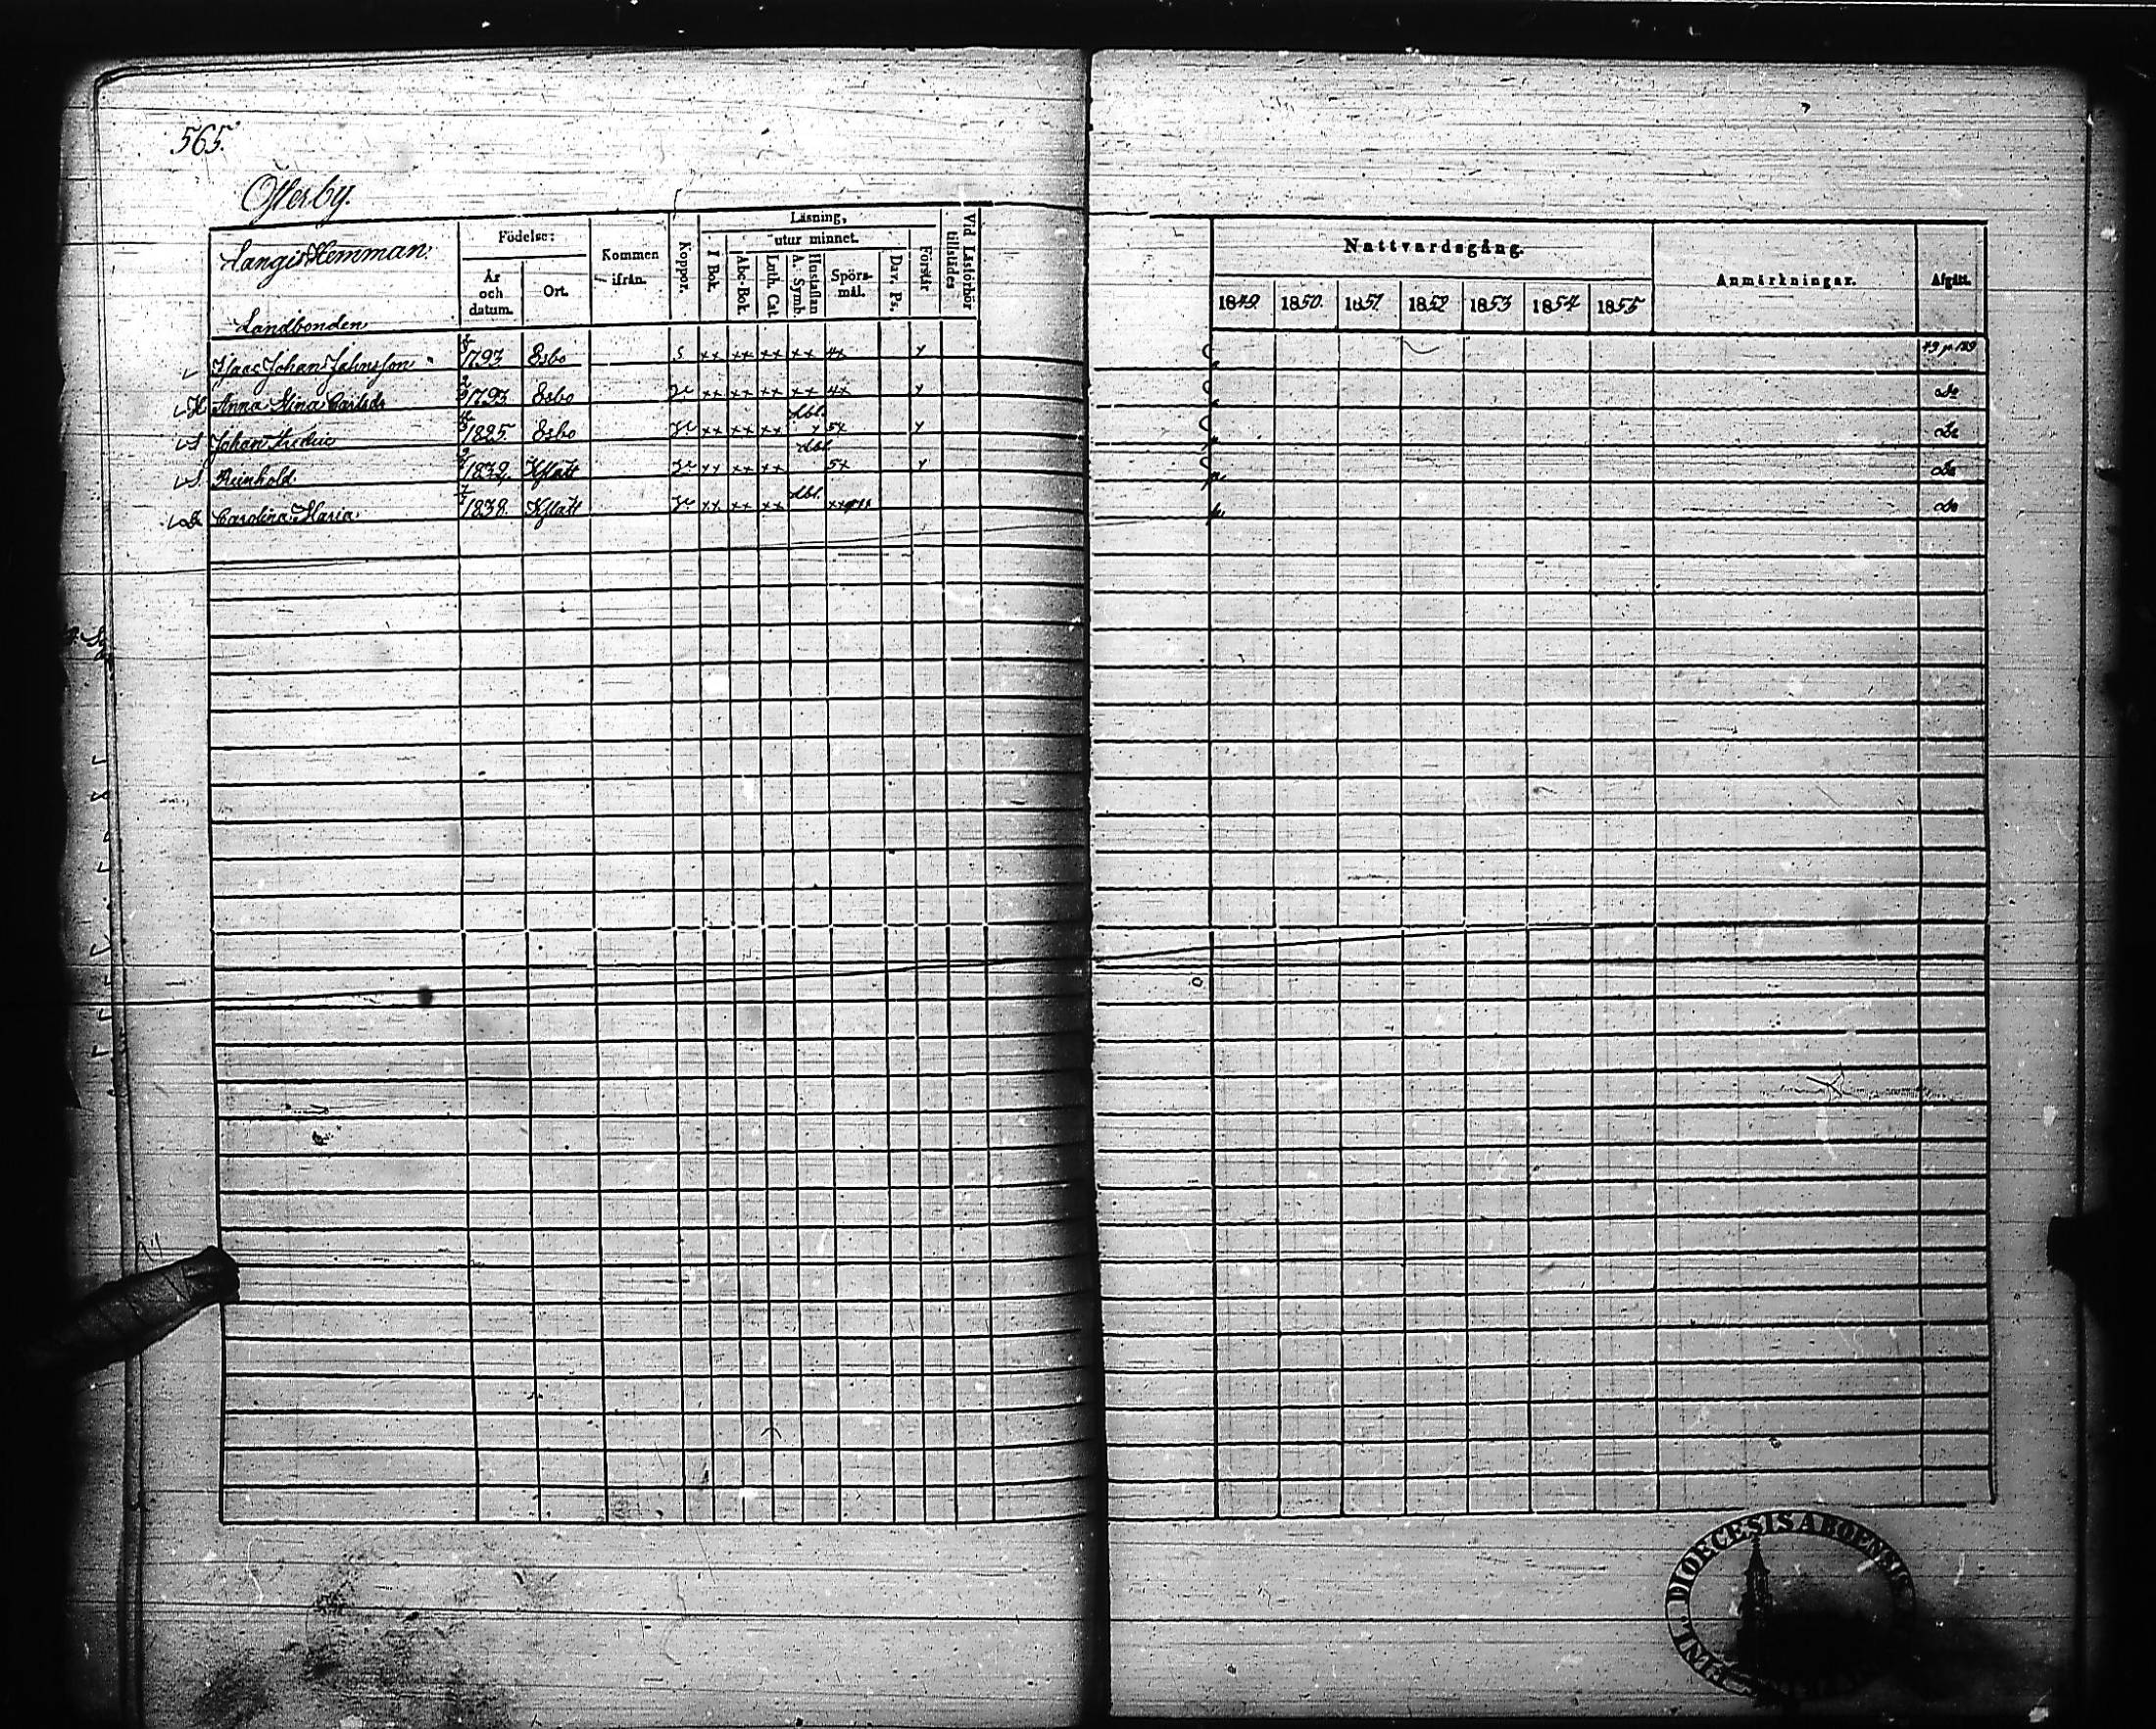 565.
Österby.
Langis Hemman.
Födelse:
År och datum.
Ort.
Kommen ifrån.
Koppor.
Läsning,
utur minnet.
I Bok.
Abc-Bok.
Luth. Cat.
Hustaflan A. Symb.
Spörsmål.
Dav. Ps.
Förstår
Vid Läsförhör tillstädes
Nattvardsgång.
1849. 1850. 1851. 1852 1853 1854 1855
Anmärkningar.
Afgått.
Landbonden
Isaac Johan Johnsson 1793 Esbo s xx xx xx xx 4x x
H Anna Stina Carlsdr 1793 Esbo xx xx xx xx 4x x do
S Johan Fredric 1825. Esbo xx xx xx dbl. x 5x x do
S. Reinhold. 1832. Kslätt xx xx xx dbl. 5x x do
D Carolina Maria 1838. Kslätt xx xx xx dbl. do
FINL. DIOECESIS ABOENSIS